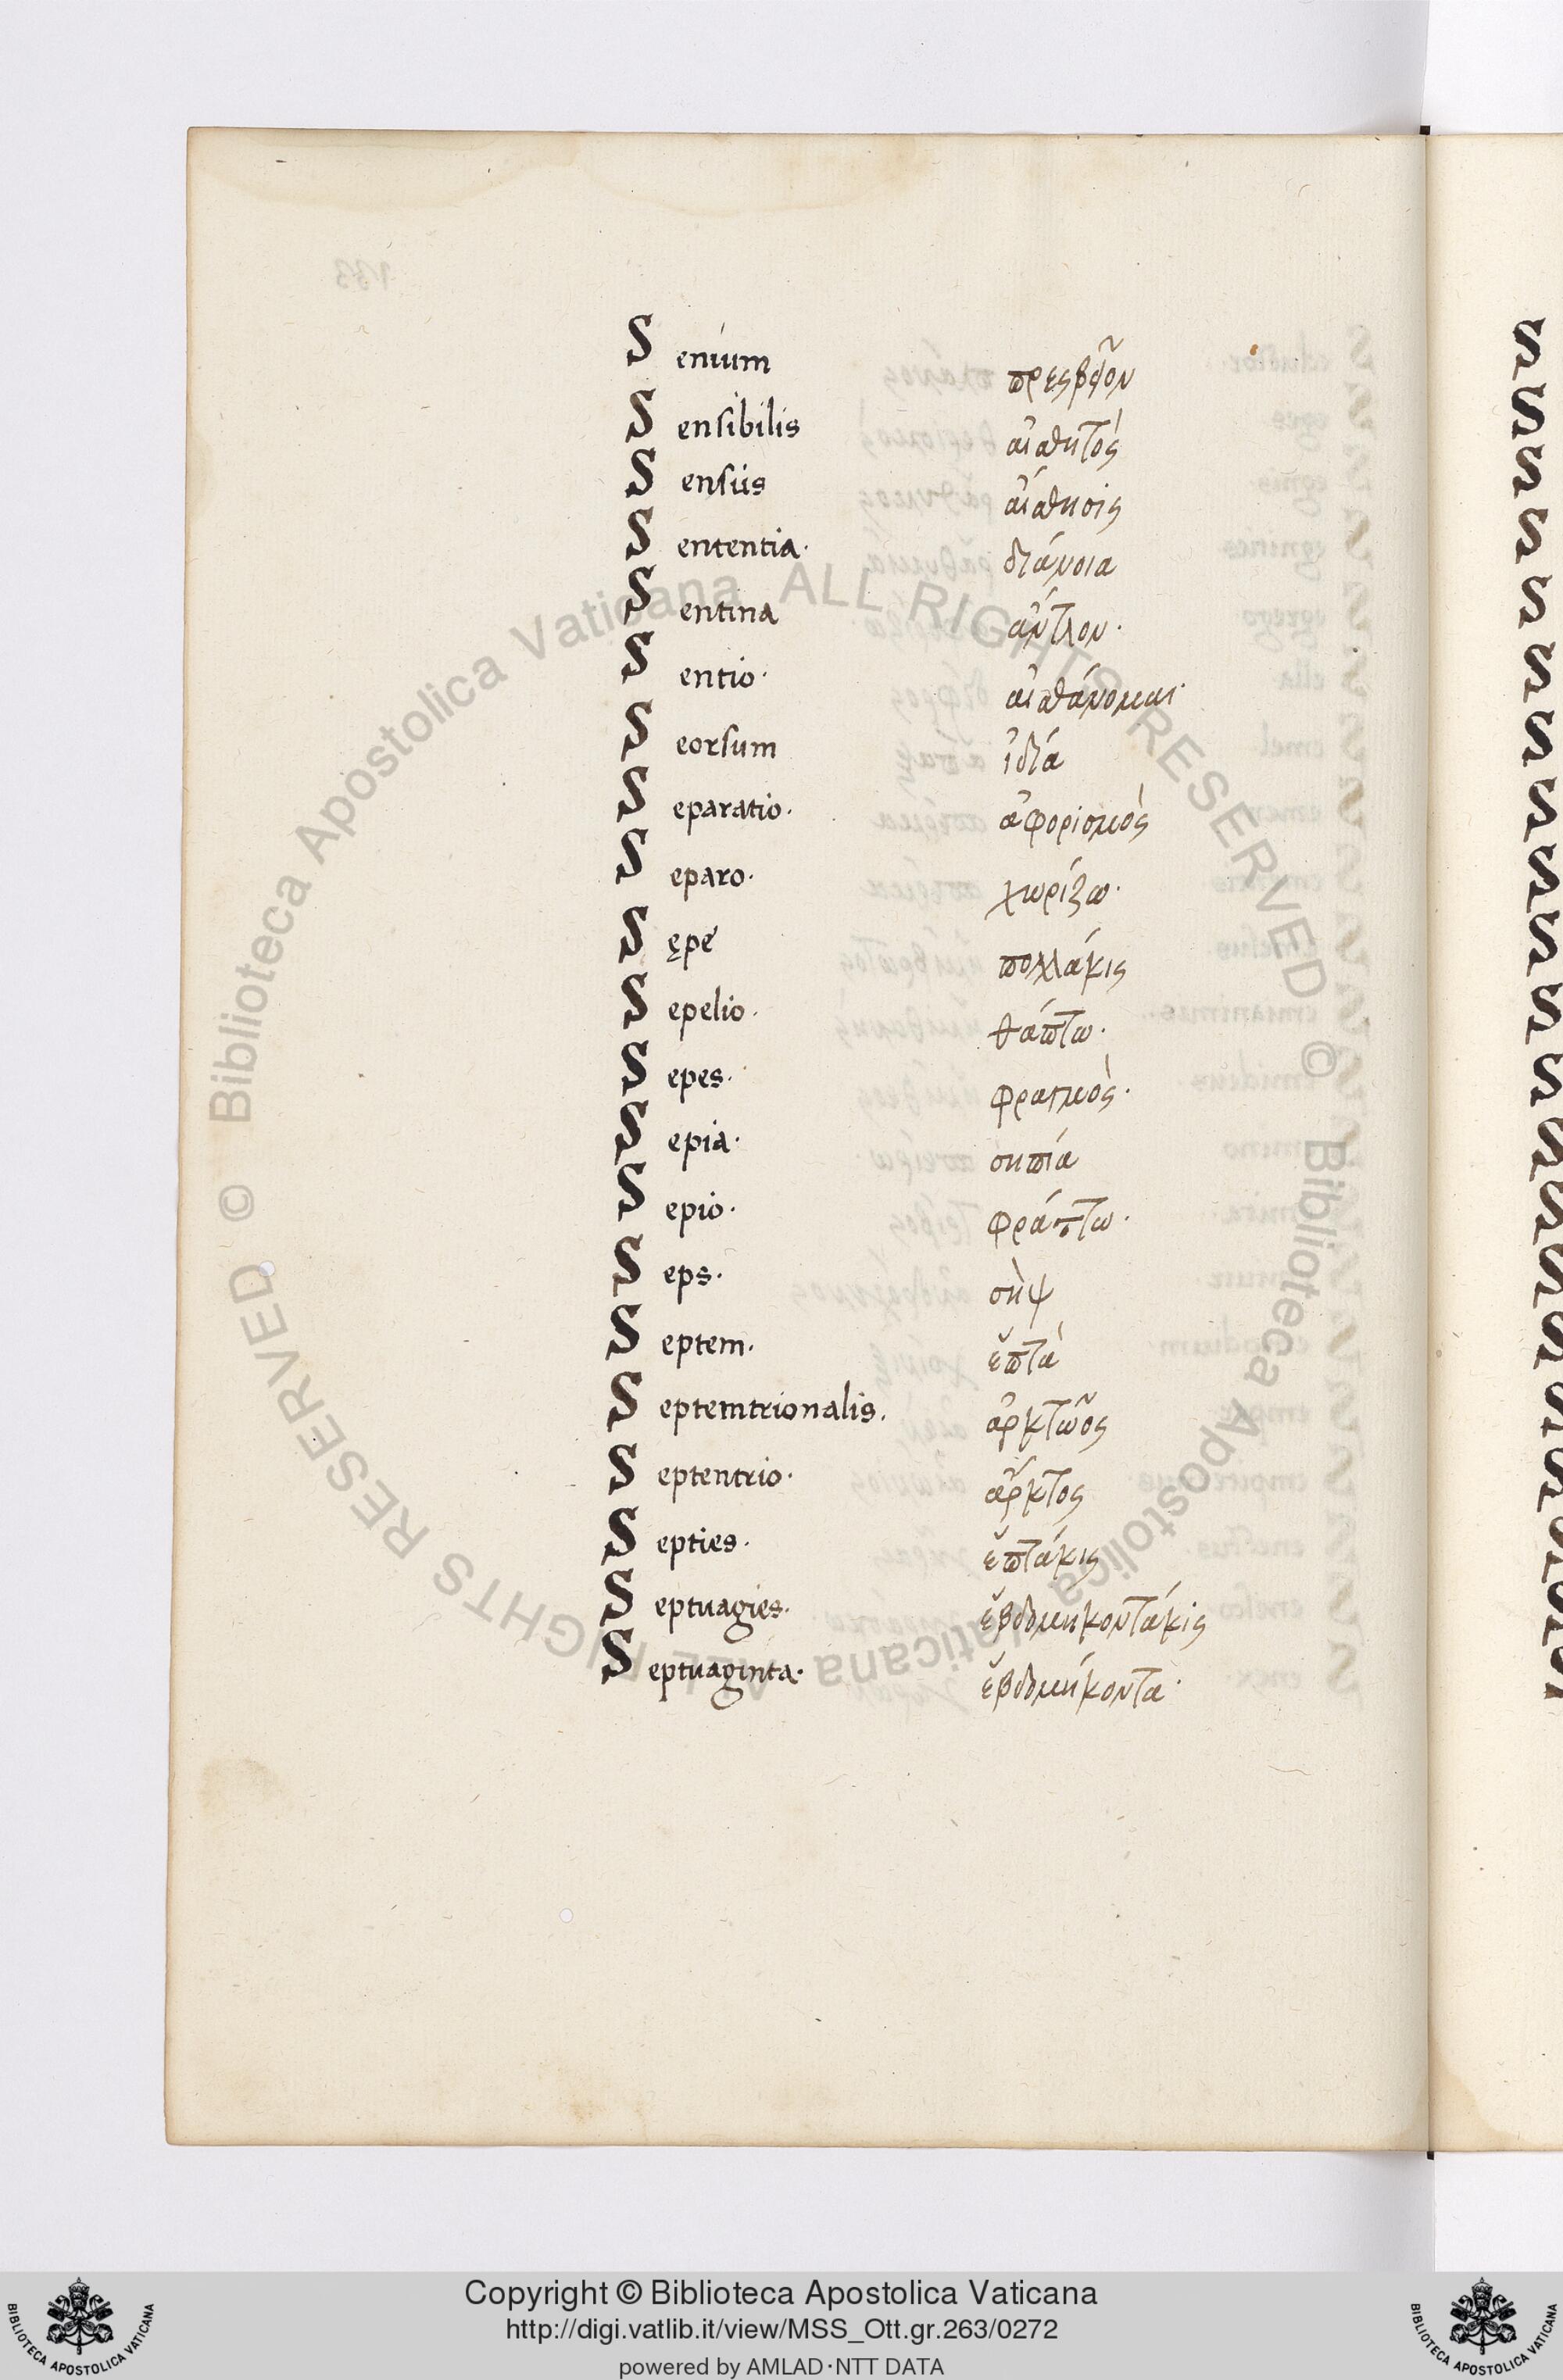 Senium πρεσβῦον
Sensibilis αἰσθητὸς
Sensus αἴσθησις
Sententia· διάνοια
Sentina ἄντλον·
Sentio· αἰσθάνομαι·
Seorsum ἰδία
Separatio· ἀφορισμὸς
Separo· χωρίζω·
Sępe πολλάκις
Sepelio· θάπτω·
Sepes· φραγμὸς·
Sepia· σηπία
Sepio· φράττω·
Seps· σὴψ
Septem· ἑπτὰ
Septemtrionalis. ἀρκτῶος
Septentrio· ἄρκτος
Septies· ἑπτάκις
Septuagies· ἑβδομηκοντάκις
Septuaginta· ἑβδομήκοντα·
© Biblioteca Apostolica Vaticana ALL RIGHTS RESERVED © Biblioteca Apostolica Vaticana ALL RIGHTS RESERVED
Copyright © Biblioteca Apostolica Vaticana
http://digi.vatlib.it/view/MSS_Ott.gr.263/0272
powered by AMLAD·NTT DATA
BIBLIOTECA APOSTOLICA VATICANA
BIBLIOTECA APOSTOLICA VATICANA